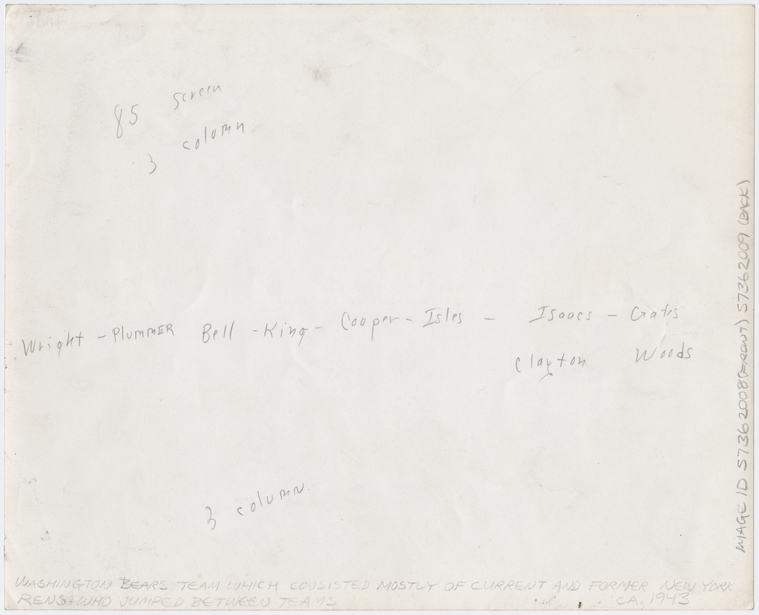 85 screen
3 column
Wright - PLUMMER Bell - King - Cooper - Isles - Isaacs - Gates
Clayton Woods
3 column
WASHINGTON BEARS TEAM WHICH CONSISTED MOSTLY OF CURRENT AND FORMER NEW YORK
RENS WHO JUMPED BETWEEN TEAMS CA. 1943
IMAGE ID 57362008 (FRONT) 57362009 (BACK)